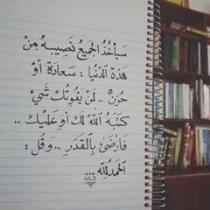 سَيأخُذُ الجَميعُ نَصيبهُ مِنْ
هَذهِ الدُّنْيا : سعادة أوْ
حُزنٌ .. لَنْ يَفُوتكَ شَيْءٌ
كَتبَهُ اللهُ لكَ أو عَليْكَ ..
فَارضَىٰ بِالقَدرِ .. وَقُل :
الحَمدُللهِ ...